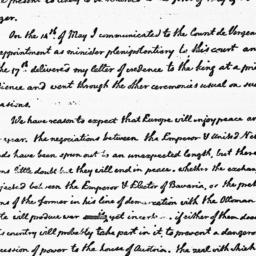 ger.
On the 14th of May I communicated to the Count de Vergen
appointment as minister plenipotentiary to this court and
the 17th delivered my letter of credence to the king at a pri
dience and went through the other ceremonies usual on su
asions.
We have reason to expect that Europe will enjoy peace an
year. the negociations between the Emperor & United Neth
ds have been spun out to an unexpected length, but there
ems little doubt but they will end in peace. whether the exchan
jected between the Emperor & Elector of Bavaria, or the pret
ons of the former in his line of demarcation with the Ottoman
te will produce war is yet incertain. if either of them does
is country will probably take part in it, to prevent a dangerou
cession of power to the house of Austria. the zeal with which